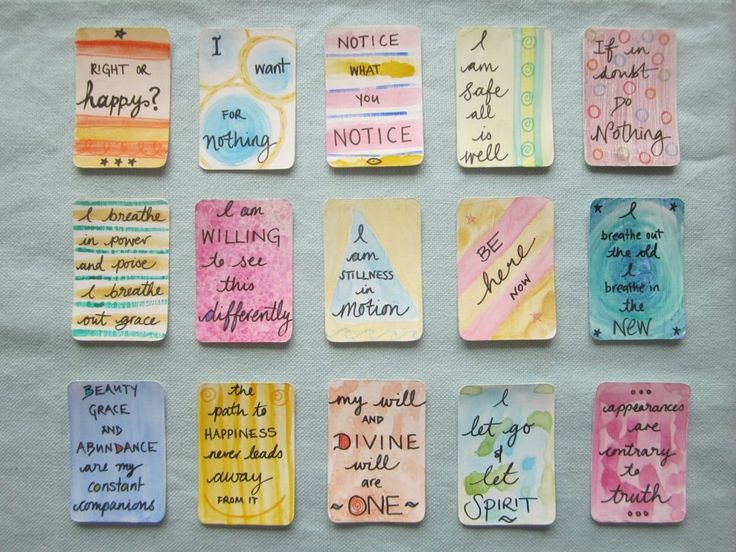 RIGHT OR
happy?
I
want
FOR
nothing
NOTICE
WHAT
YOU
NOTICE
I
am
safe
all
is
well
If in
doubt
Do
Nothing
I breathe
in power
and poise
I breathe
out grace
I am
WILLING
to see
this
differently
I
am
STILLNESS
in
motion
BE
here
NOW
I
breathe out
the old I
breathe in
the
NEW
BEAUTY
GRACE
AND
ABUNDANCE
are my
constant
companions
the
path to
HAPPINESS
never leads
away
FROM IT
my will
AND
DIVINE
will
are
~ONE~
I
let go
&
let
SPIRIT
~
appearances
are
contrary
to
truth